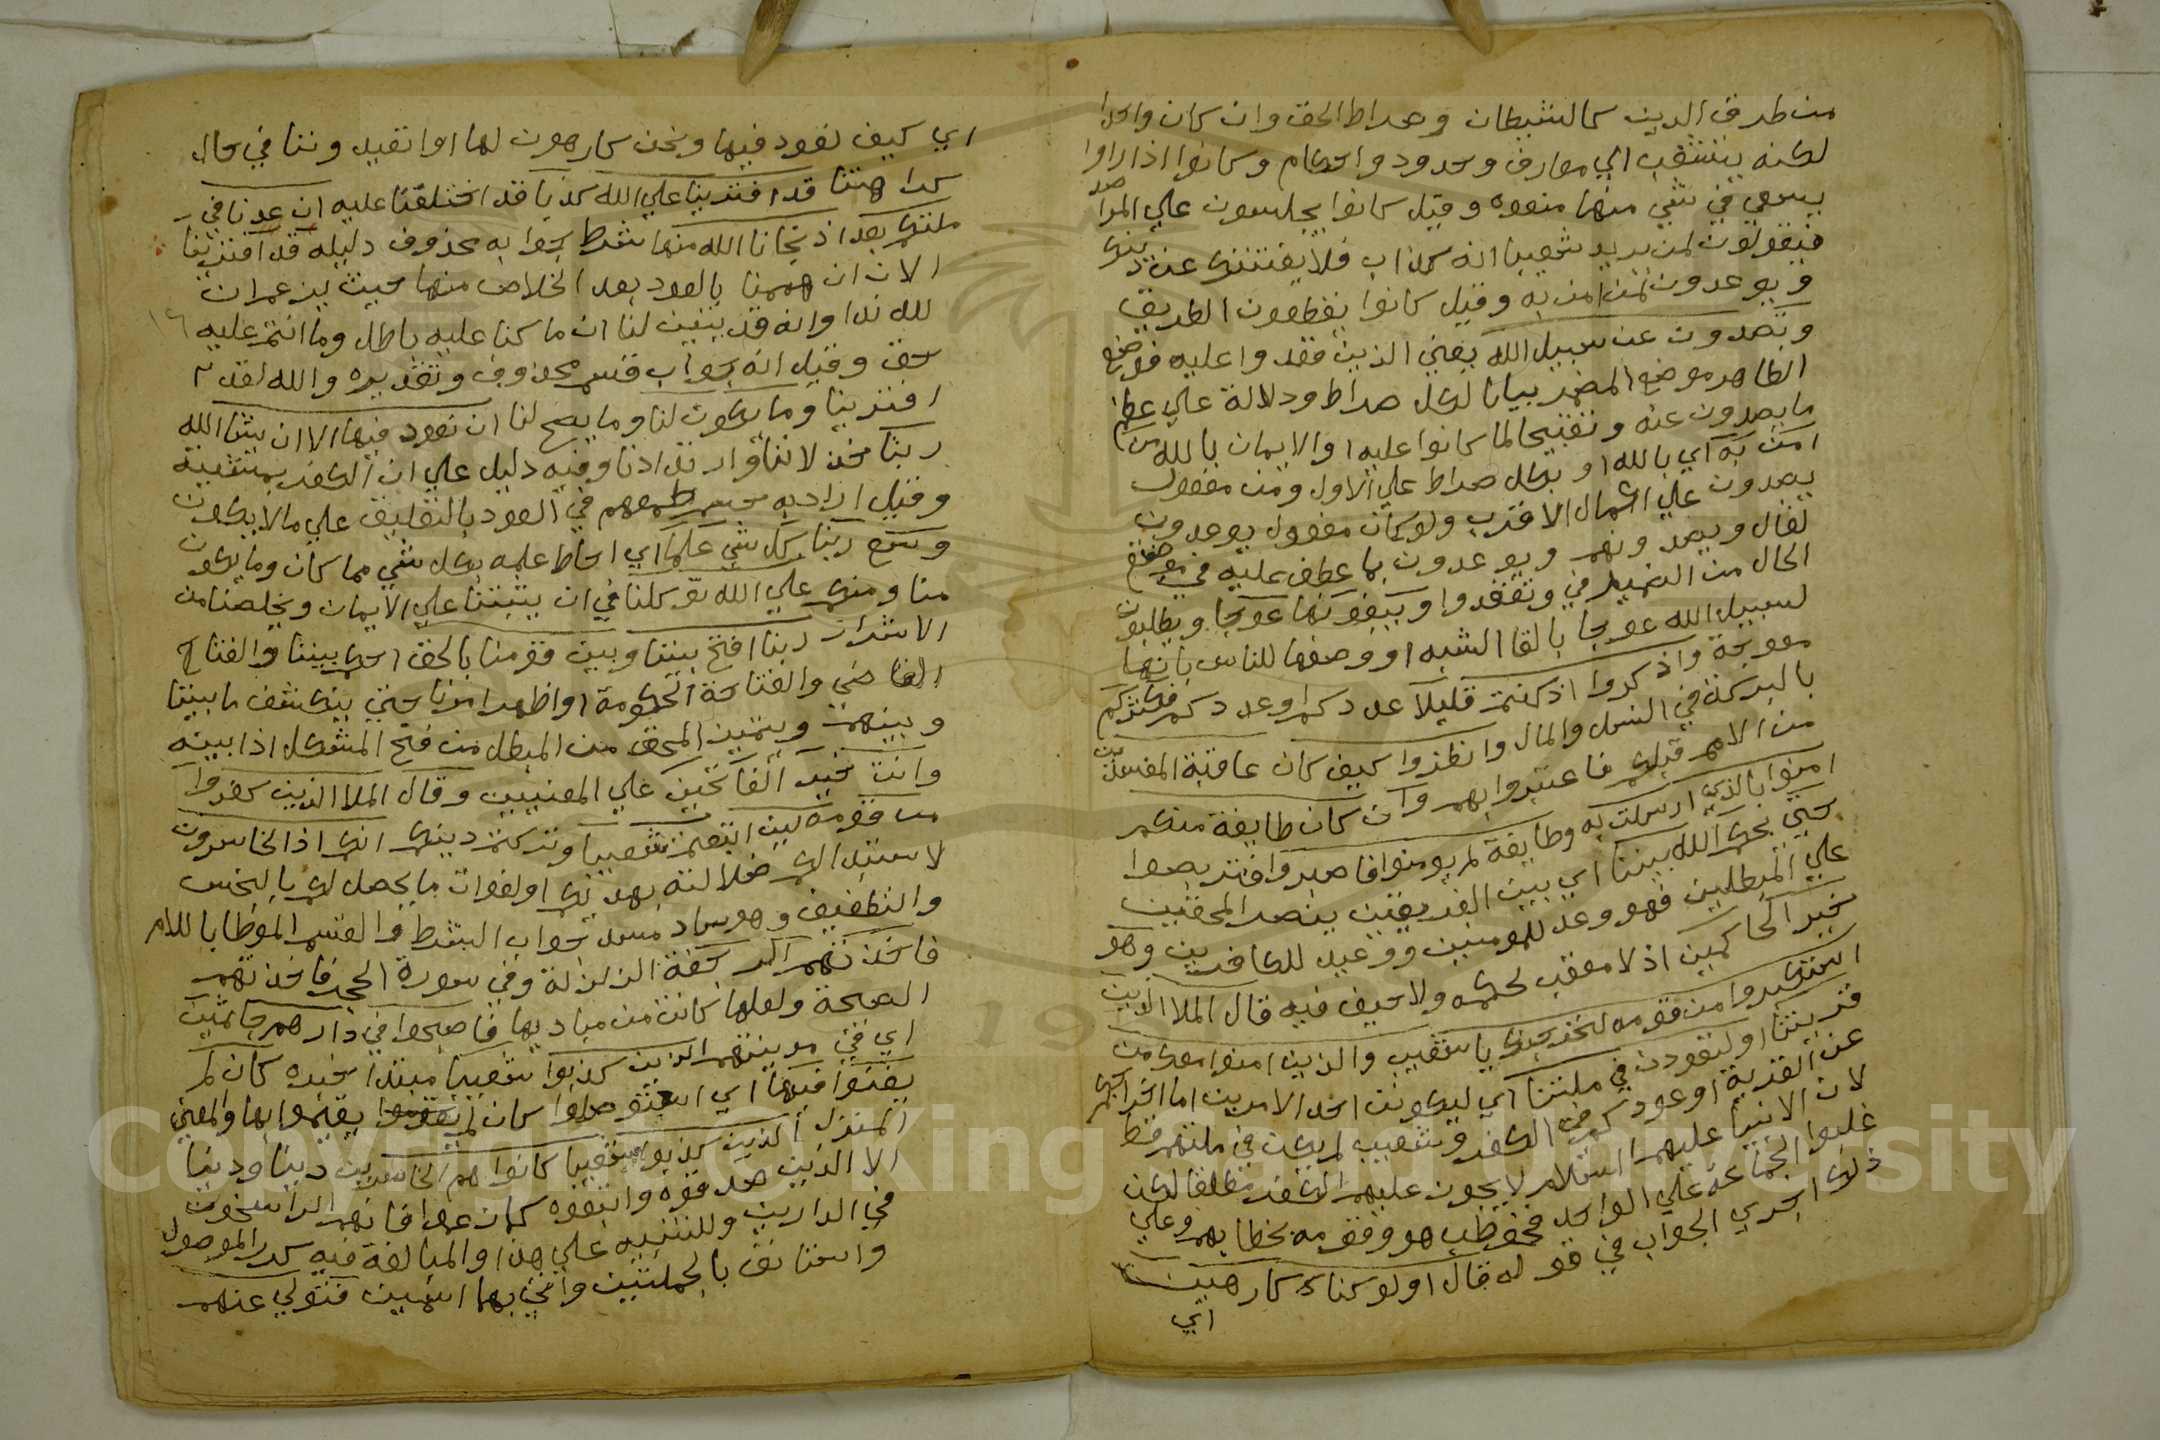 من طرق الدين كالشيطان وصراط الحق وان كان واحدا
لكنه يتشعب الي معارف وحدود واحكام وكانوا اذا راوا
يسعي في شي منها منعوه وقيل كانوا يجلسون علي المراصد
فيقولون لمن يريد شعيبا انه كذاب فلا يفتننك عن دينك
ويوعدون لمن امن به وقيل كانوا يقطعون الطريق
وتصدون عن سبيل الله يعني الذين قعدوا عليه فوضع
الظاهر موضع المضمر بيانا لكل صراط ودلالة علي عظم
ما يصدون عنه وتقبيحا لما كانوا عليه او الايمان بالله من
امن به اي بالله او بكل صراط علي الاول ومن مفعول
يصدون علي اعمال الاقرب ولو كان مفعول يوعدون
لقال ويصدونهم ويوعدون بما عطف عليه في موضع
الحال من الضمير في وتقعدوا وتبغونها عوجا ويطلبون
لسبيل الله عوجا بالقا الشبه او وصفها للناس بانها
معوجة واذكروا اذ كنتم قليلا عددكم او عددكم فكثركم
بالبركة في النسل والمال وانظروا كيف كان عاقبة المفسدين
من الامم قبلكم فاعتبروا بهم وان كان طايفة منكم
امنوا بالذي ارسلت به وطايفة لم يومنوا فاصبروا فتربصوا
حتي يحكم الله بيننا اي بين الفريقين ينصر المحقين
علي المبطلين فهو وعد للمومنين ووعيد للكافرين وهو
خير الحاكمين اذ لا معقب لحكمه ولا حيف فيه قال الملا الذين
استكبروا من قومه لنخرجنك يا شعيب والذين امنوا معك من
قريتنا او لتعودن في ملتنا اي ليكونن احد الامرين اما اخراجكم
عن القرية او عودكم في الكفر وشعيب لم يكن في ملتهم قط
لان الانبيا عليهم السلام لا يجوز عليهم الكفر مطلقا لكن
غلبوا الجماعة علي الواحد فخوطب هو وقومه بخطابهم وعلي
ذلك اجري الجواب في قوله قال اولو كنا كارهين
اي
اي كيف نعود فيها ونحن كارهون لها او اتعيدوننا في حال
كراهتنا قد افترينا علي الله كذبا قد اختلقنا عليه ان عدنا في
ملتكم بعد اذ نجانا الله منها شرط جوابه محذوف دليله قد افترينا
الان ان هممنا بالعود بعد الخلاص منها حيث نزعم ان
لله ندا وانه قد تبين لنا ان ما كنا عليه باطل وما انتم عليه
حق وقيل انه جواب قسم محذوف وتقديره والله لقد
افترينا وما يكون لنا وما يصح لنا ان نعود فيها الا ان يشا الله
ربنا خذلاننا وارتدادنا وفيه دليل علي ان الكفر بمشيية
وقيل اراد به حسم طمعهم في العود بالتعليق علي ما لا يكون
وسع ربنا كل شي علما اي احاط علمه بكل شي مما كان وما يكون
منا ومنكم علي الله توكلنا في ان يثبتنا علي الايمان ويخلصنا من
الاشرار ربنا افتح بيننا وبين قومنا بالحق احكم بيننا والفتاح
القاضي والفتاحة الحكومة او اظهر امرنا حتي ينكشف ما بيننا
وبينهم ويتميز المحق من المبطل من فتح المشكل اذا بينه
وانت خير الفاتحين علي المعنيين وقال الملا الذين كفروا
من قومه لين اتبعتم شعيبا وتركتم دينكم انكم اذا لخاسرون
لاستبدالكم ضلالته بهداكم او لفوات ما يحصل لكم بالبخس
والتطفيف وهو ساد مسد جواب الشرط والقسم الموطا باللام
فاخذتهم الرجفة الزلزلة وفي سورة الحجر فاخذتهم
الصيحة ولعلها كانت من مباديها فاصبحوا في دارهم جاثمين
اي في مدينتهم الذين كذبوا شعيبا مبتدا خبره كان لم
يغنوا فيها اي استوصلوا كان لم يقيموا بها والمغني
المنزل الذين كذبوا شعيبا كانوا هم الخاسرين دينا ودنيا
الا الذين صدقوه واتبعوه كما زعموا فانهم الرابحون
في الدارين وللتنبيه علي هذا والمبالغة فيه كرر الموصول
واستانف بالجملتين واتي بهما اسميتين فتولي عنهم
Copyright © King Saud University